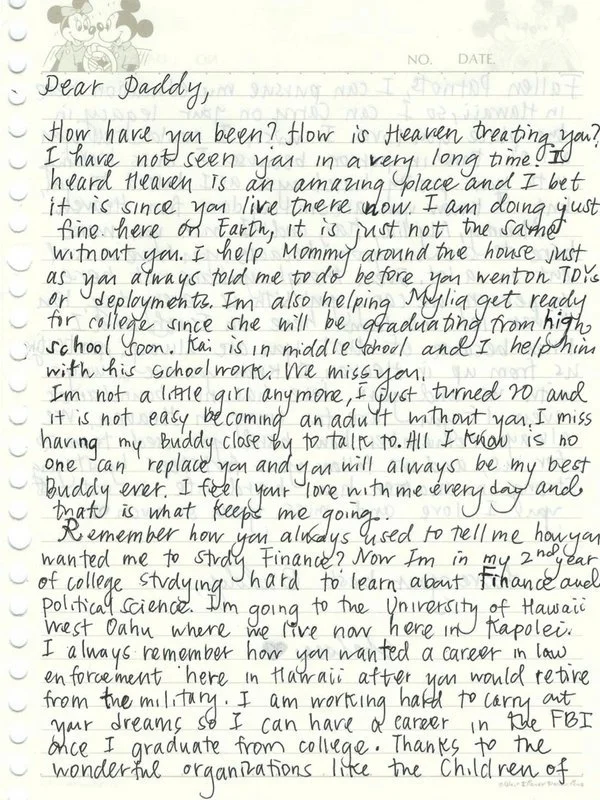 NO. DATE.
Dear Daddy,
How have you been? How is Heaven treating you?
I have not seen you in a very long time! I
heard Heaven is an amazing place and I bet
it is since you live there now. I am doing just
fine here on Earth, it is just not the same
without you. I help Mommy around the house just
as you always told me to do before you went on TDYs
or deployments. Im also helping Mylia get ready
for college since she will be graduating from high
school soon. Kai is in middle school and I help him
with his schoolwork. We miss you.
Im not a little girl anymore, I just turned 20 and
it is not easy becoming an adult without you. I miss
having my Buddy close by to talk to. All I know is no
one can replace you and you will always be my best
Buddy ever. I feel your love with me every day and
that is what keeps me going.
Remember how you always used to tell me how you
wanted me to study Finance? Now Im in my 2nd year
of college studying hard to learn about Finance and
political science. I'm going to the University of Hawaii
West Oahu where we live now here in Kapolei.
I always remember how you wanted a career in law
enforcement here in Hawaii after you would retire
from the military. I am working hard to carry out
your dreams so I can have a career in the FBI
once I graduate from college. Thanks to the
wonderful organizations like the Children of